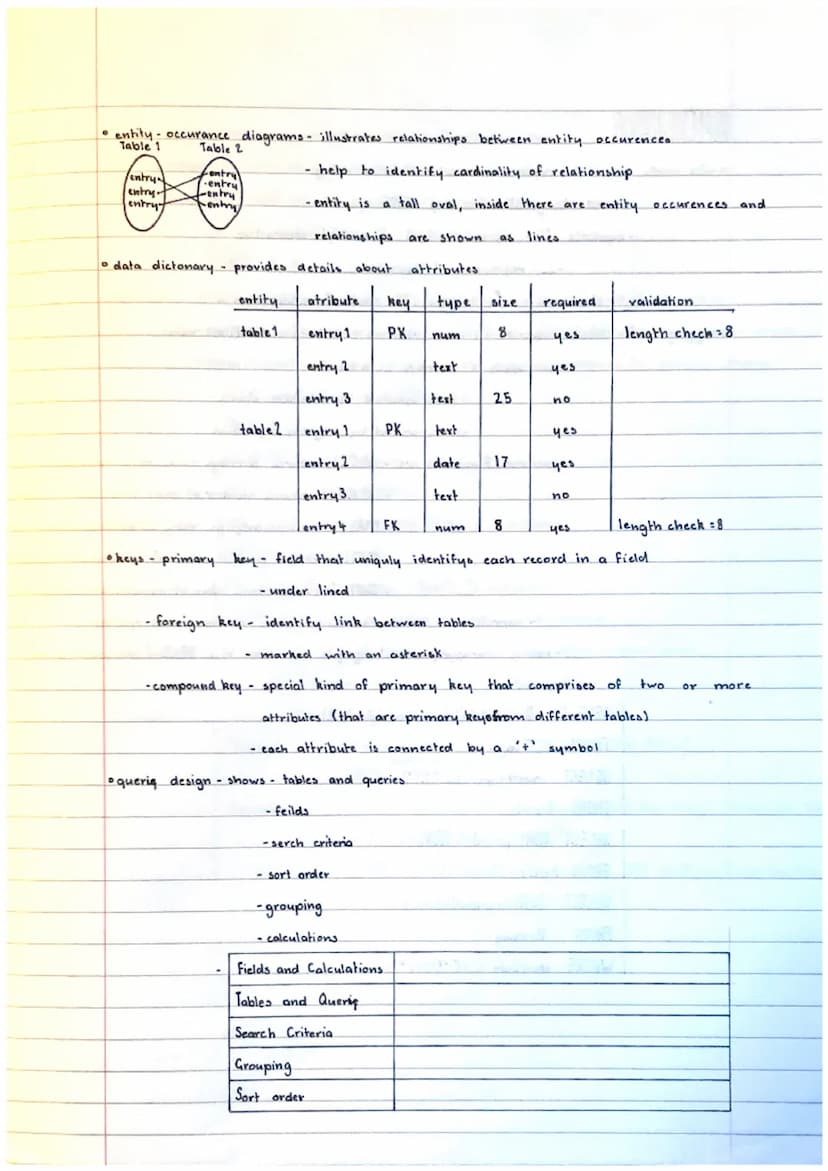 • entity - occurance diagrams - illustrates relationships between entity occurences
Table 1 Table 2
entry entry
entry entry
entry entry
entry
- help to identify cardinality of relationship
- entity is a tall oval, inside there are entity occurences and
relationships are shown as lines
• data dictonary - provides details about attributes
entity atribute key type size required validation
table1 entry1 PK num 8 yes length check = 8
entry 2 text yes
entry 3 text 25 no
table2 entry 1 PK text yes
entry 2 date 17 yes
entry 3 text no
entry 4 FK num 8 yes length check = 8
• keys - primary key - field that uniquly identifys each record in a field
- under lined
- foreign key - identify link between tables
- marked with an asterisk
- compound key - special kind of primary key that comprises of two or more
attributes (that are primary keys from different tables)
- each attribute is connected by a '+' symbol
• querie design - shows - tables and queries
- feilds
- serch criteria
- sort order
- grouping
- calculations
- Fields and Calculations
Tables and Querie
Search Criteria
Grouping
Sort order